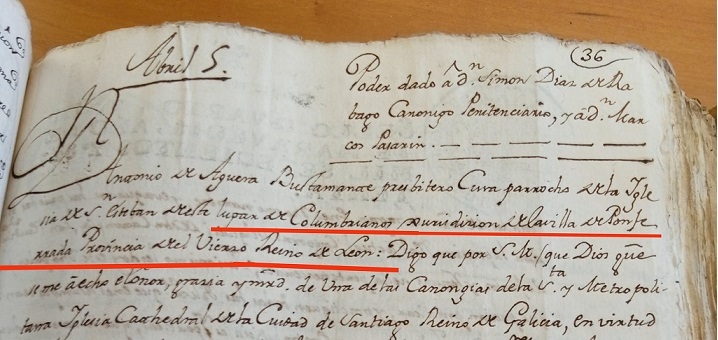 36
Abril 5.
Poder dado â d.n Simon Diaz de Ra
bago Canonigo Penitenciario, y â d.n Mar
cos Pasarin.
Antonio de Aguera Bustamante presbitero Cura parrocho de la Igle
sia de S.n Esteban de este lugar de Columbrianos Jurisdicion de la villa de Ponfe
rrada Provincia de el Vierzo Reino de Leon: Digo que por S. M. (que Dios gũe
se me â echo el onor, grasia y mrd. de una de las Canongias de la S.ta y Metropoli
tana Iglesia Cathedral de la Ciudad de Santiago Reino de Galicia, en virtud